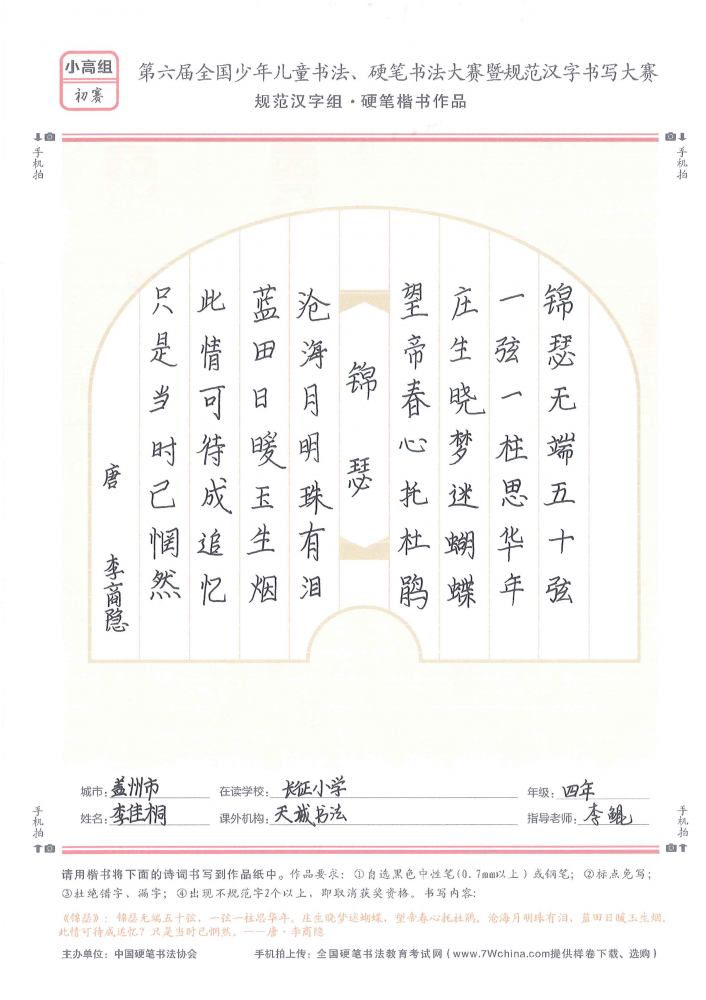 小高组
初赛
第六届全国少年儿童书法、硬笔书法大赛暨规范汉字书写大赛
规范汉字组·硬笔楷书作品
手机拍
手机拍
锦瑟无端五十弦
一弦一柱思华年
庄生晓梦迷蝴蝶
望帝春心托杜鹃
锦瑟
沧海月明珠有泪
蓝田日暖玉生烟
此情可待成追忆
只是当时已惘然
唐 李商隐
城市：盖州市 在读学校：长征小学 年级：四年
姓名：李佳桐 课外机构：天城书法 指导老师：李鲲
手机拍
手机拍
请用楷书将下面的诗词书写到作品纸中。作品要求：①自选黑色中性笔(0.7mm以上)或钢笔；②标点免写；
③杜绝错字、漏字；④出现不规范字2个以上，即取消获奖资格。书写内容：
《锦瑟》：锦瑟无端五十弦，一弦一柱思华年。庄生晓梦迷蝴蝶，望帝春心托杜鹃。沧海月明珠有泪，蓝田日暖玉生烟。
此情可待成追忆？只是当时已惘然。——唐·李商隐
主办单位：中国硬笔书法协会 手机拍上传：全国硬笔书法教育考试网（www.7Wchina.com提供样卷下载、选购）